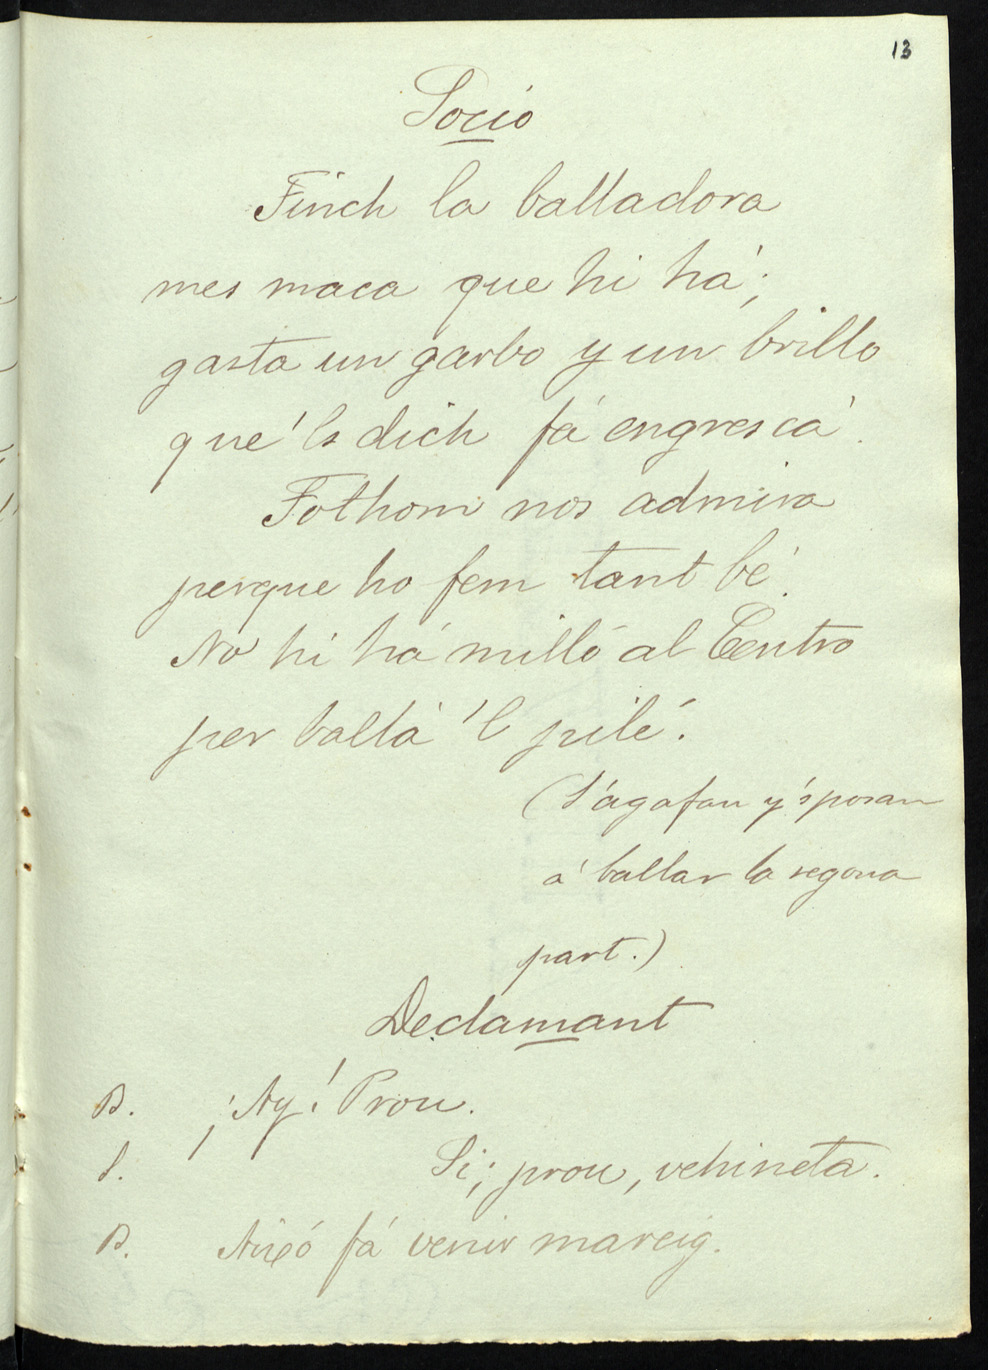 13
Socio
Tinch la balladora
mes maca que hi há;
gasta un garbo y un brillo
que 'ls dich fá engrescá.
Tothom nos admira
perque ho fem tant bé.
No hi há milló al Centro
per ballá 'l pilé.
(S'agafan y's posan
á ballar la segona
part.)
Declamant
B. ¡Ay! Prou.
S. Si; prou, vehineta.
B. Aixó fá venir mareig.